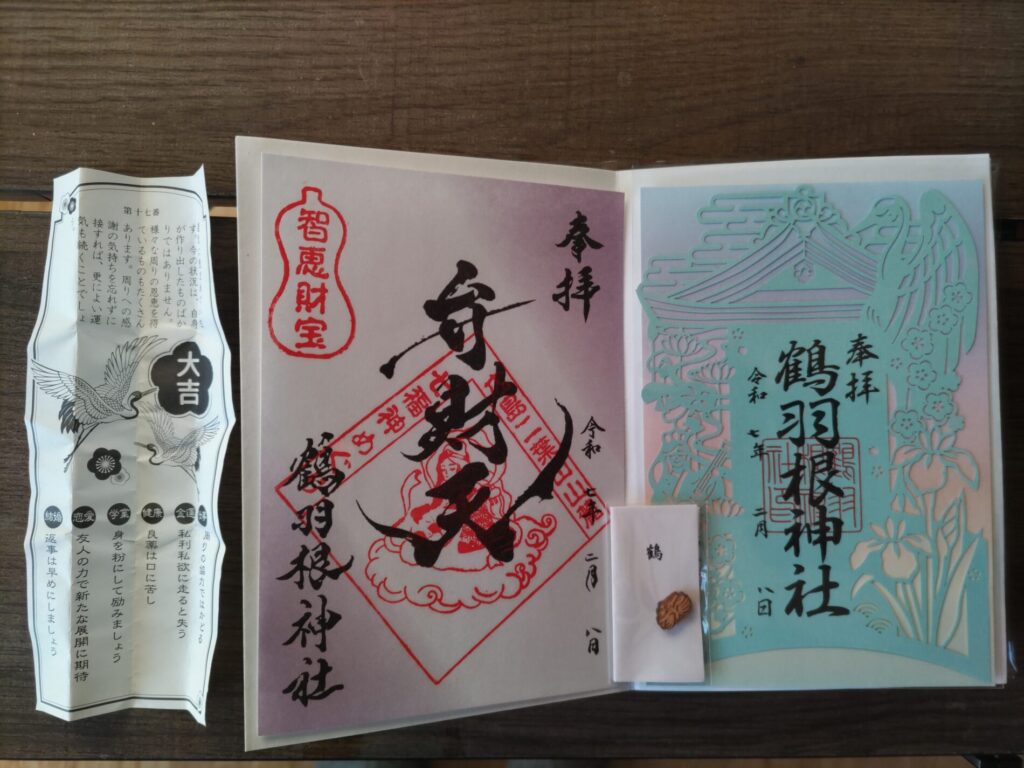 第十七番
す。今の状況は、自身
が作り出したものばか
りではありません。
様々な周りの恩恵を得
ているものもたくさん
あります。周りへの感
謝の気持ちを忘れずに
接すれば、更によい運
気も続くことでしょ
大吉
金運 私利私欲に走ると失う
健康 良薬は口に苦し
学業 身を粉にして励みましょう
恋愛 友人の力で新たな展開に期待
結婚 返事は早めにしましょう
奉拝
令和 七年 二月 八日
弁財天
七福神め
智恵財宝
鶴羽根神社
鶴
奉拝
鶴羽根神社
令和 七年 二月 八日